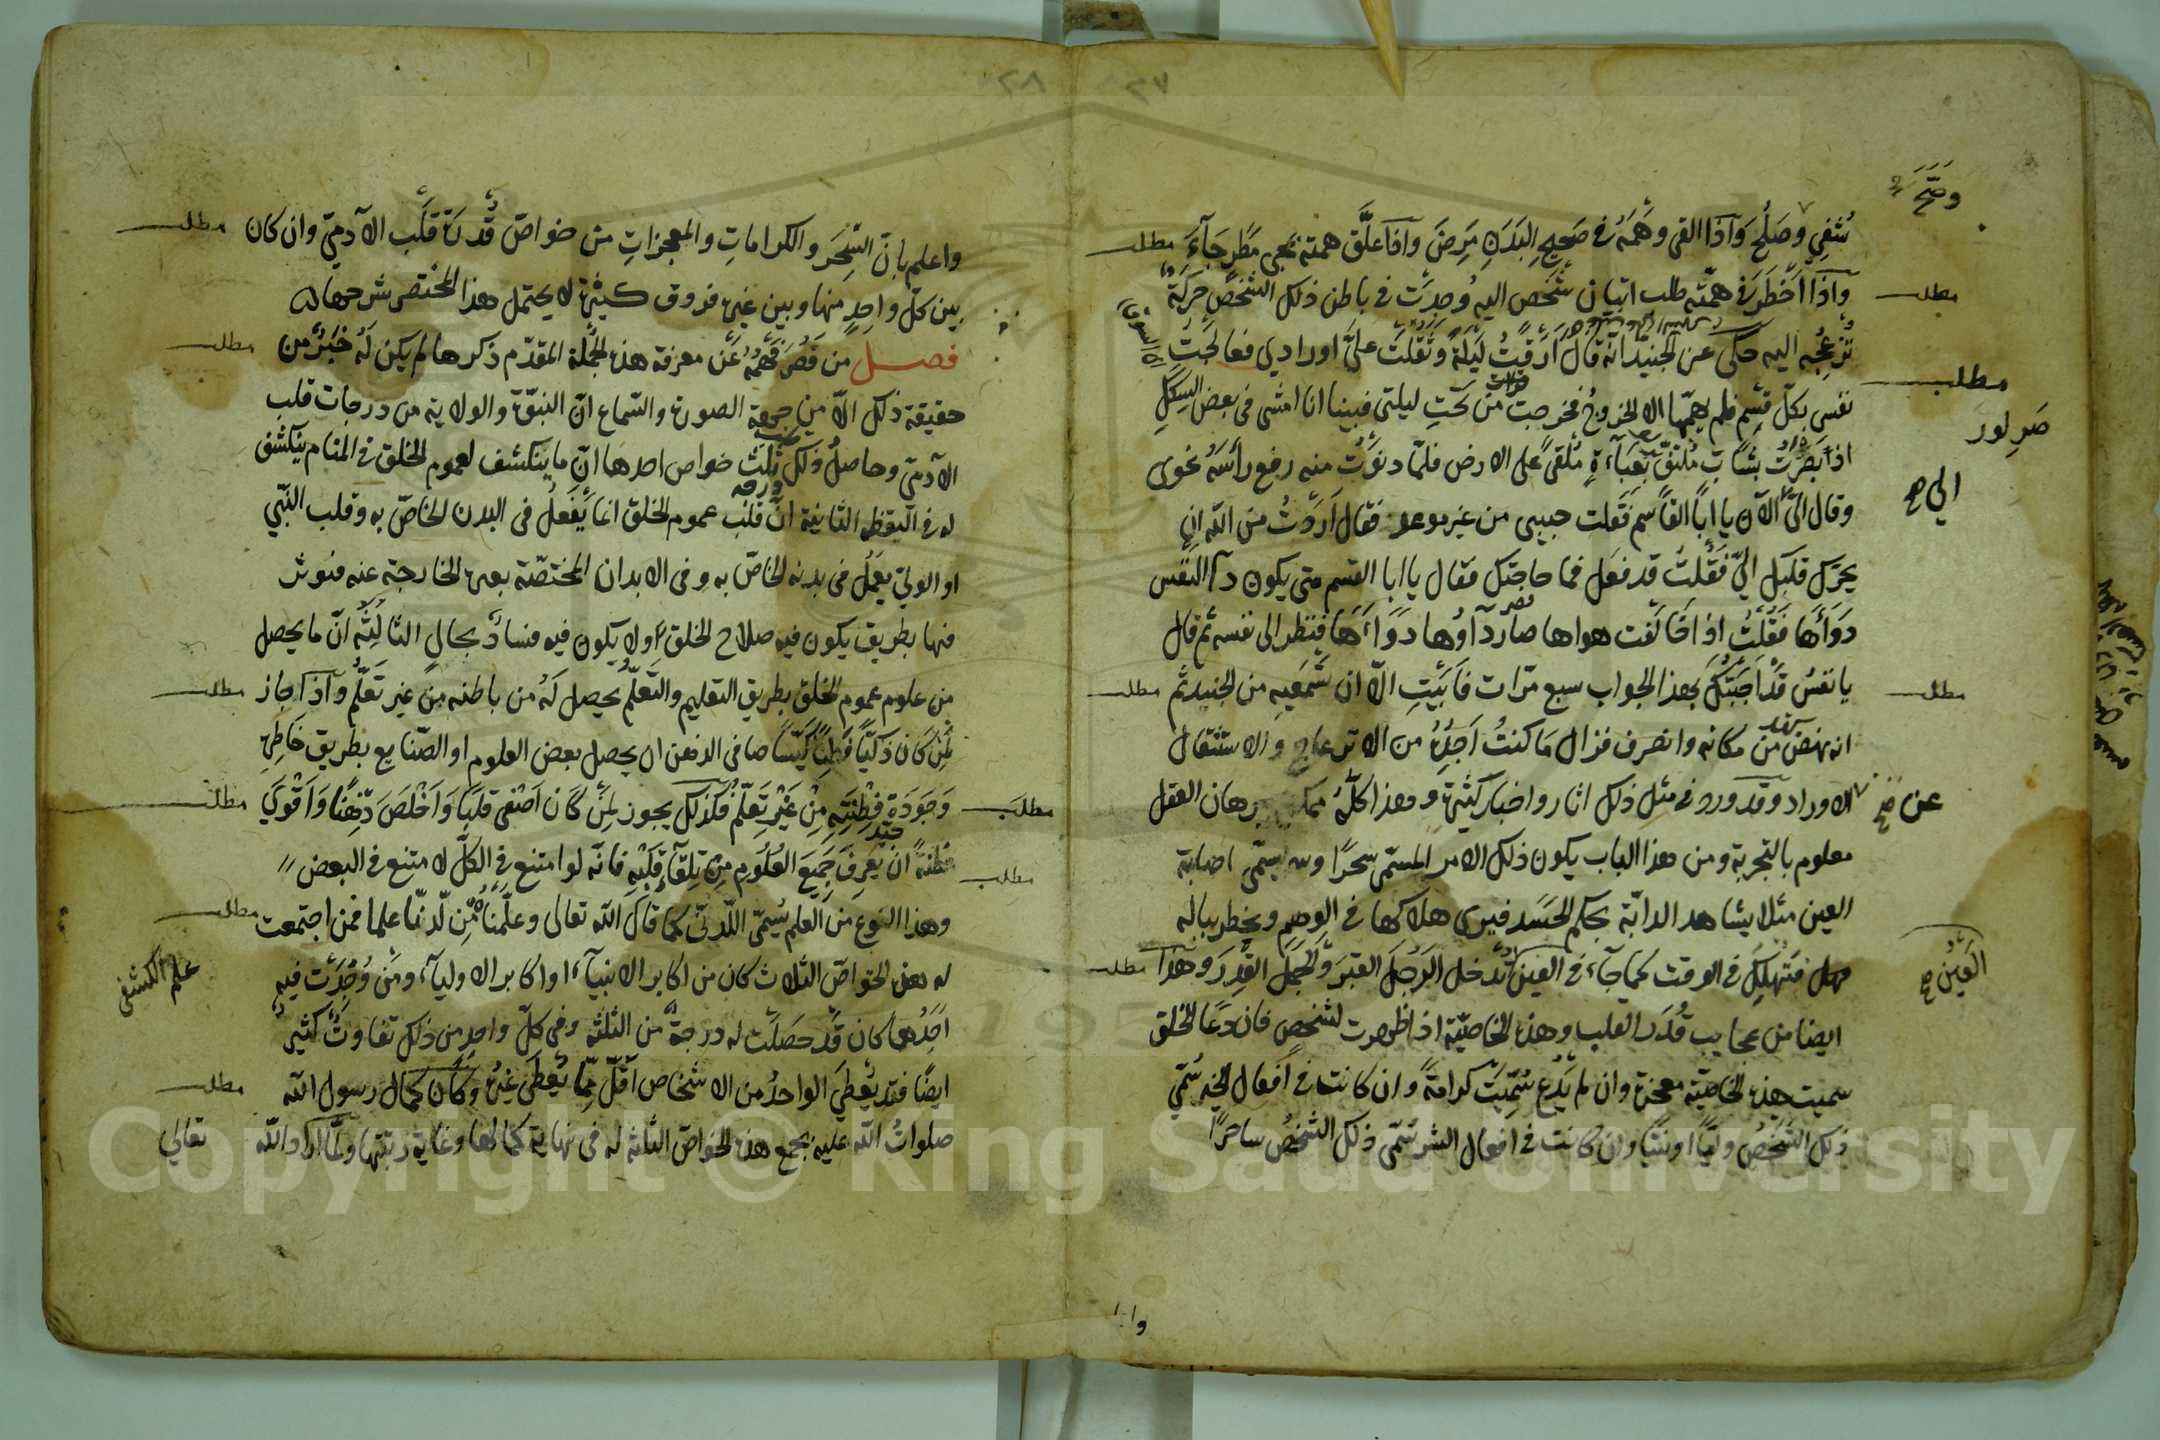 وصح
شفي وصلح وآذا القى وهمه في صحيح البدن مرض وآذا علق همته بمجي مطر جآء
وآذا اخطر في همته طلب اتيان شخص اليه وجدت في باطن ذلك الشخص حركة
تزعجه اليه حكى عن الجنيد انه قال ارقت ليلة وثقلت على اورادي فعالجت
نفسي بكل قسم فلم يهمها الا الخروج فخرجت من تحت ليلتي فبينا انا امشي في بعض السكك
اذا بصرت بشاب ملتف بعبآءة ملقى على الارض فلما دنوت منه رفع رأسه نحوى
وقال الى الآن يا ابا القاسم فقلت حبيبى من غير موعد فقال اردت من الله ان
يحرك قلبك الى فقلت قد فعل فما حاجتك فقال يا ابا القسم متى يكون دآ النفس
دوآءها فقلت اذا خالفت هواها صار دآوها دوآءها فنظر الى نفسه ثم قال
يا نفس قد اجبتك بهذا الجواب سبع مرات فابيت الا ان تسمعيه من الجنيد ثم
انه نهض من مكانه وانصرف فزال ما كنت اجده من الانزعاج والاستثقال
عن
الاوراد وقد ورد في مثل ذلك اثار واخبار كثيرة وهذا كله ممكن ببرهان العقل
معلوم بالتجربة ومن هذا الباب يكون ذلك الامر المسمى سحرا ومنه يسمى اصابة
العين مثلا يشاهد الدابة بحكم الحسد فيرى هلاكها في الوهم ويخطر بباله
فتهلك في الوقت كما جآء في العين تدخل الرجل القبر والجمل القدر وهذا
العين
ايضا من عجايب قدر القلب وهذه الخاصية اذا ظهرت لشخص فان دعا الخلق
سميت هذه الخاصية معجزة وان لم يدع سميت كرامة وان كانت في افعال الخير سمي
ذلك الشخص وليا او نبيا وان كانت في افعال الشر سمى ذلك الشخص ساحرا
واعلم بان السحر والكرامات والمعجزات من خواص قدرة قلب الآدمي وان كان
بين كل واحد منها وبين غيره فروق كثيرة لا يحتمل هذا المختصر شرحها
فصل من قصر فهمه عن معرفة هذه الجملة المقدم ذكرها لم يكن له خبر من
حقيقة ذلك الا من جهة الصورة والسماع ان النبوة والولاية من درجات قلب
الآدمي وحاصل ذلك ثلث خواص احدها ان ما ينكشف لعموم الخلق في المنام ينكشف
له في اليقظه الثانية ان قلب عموم الخلق انما يفعل في البدن الخاص به وقلب النبي
او الولي يعمل في بدنه الخاص به وفي الابدان المختصة بغيره الخارجة عنه فتوثر
فيها بطريق يكون فيه صلاح الخلق او لا يكون فيه فساد بحال الثالثة ان ما يحصل
من علوم عموم الخلق بطريق التعليم والتعلم يحصل له من باطنه من غير تعلم وآذا جاز
لمن كان ذكيا فطنا كيسا صافي الذهن ان يحصل بعض العلوم او الصنايع بطريق خاطره
وجودة فطنته من غير تعلم فكذلك يجوز لمن كان اصفى قلبا واخلص ذهنا واقوى
فطنة ان يعرف جميع العلوم من تلقآء قلبه فانه لو امتنع في الكل لامتنع في البعض
وهذا النوع من العلم يسمى اللدنى كما قال الله تعالى وعلمناه من لدنا علما فمن اجتمعت
له هذه الخواص الثلاث كان من اكابر الانبيآء او اكابر الاوليآء ومن وجدت فيه
علم الكشفي
احدها كان قد حصلت له درجة من الثلثة وفي كل واحد من ذلك تفاوت كثير
ايضا فقد يعطى الواحد من الاشخاص اقل مما يعطى غيره وكان كمال رسول الله
صلوات الله عليه بجمع هذه الخواص الثلثة له في نهاية كمالها وغاية رتبتها ولما اراد الله تعالى
مطلب
Copyright © King Saud University